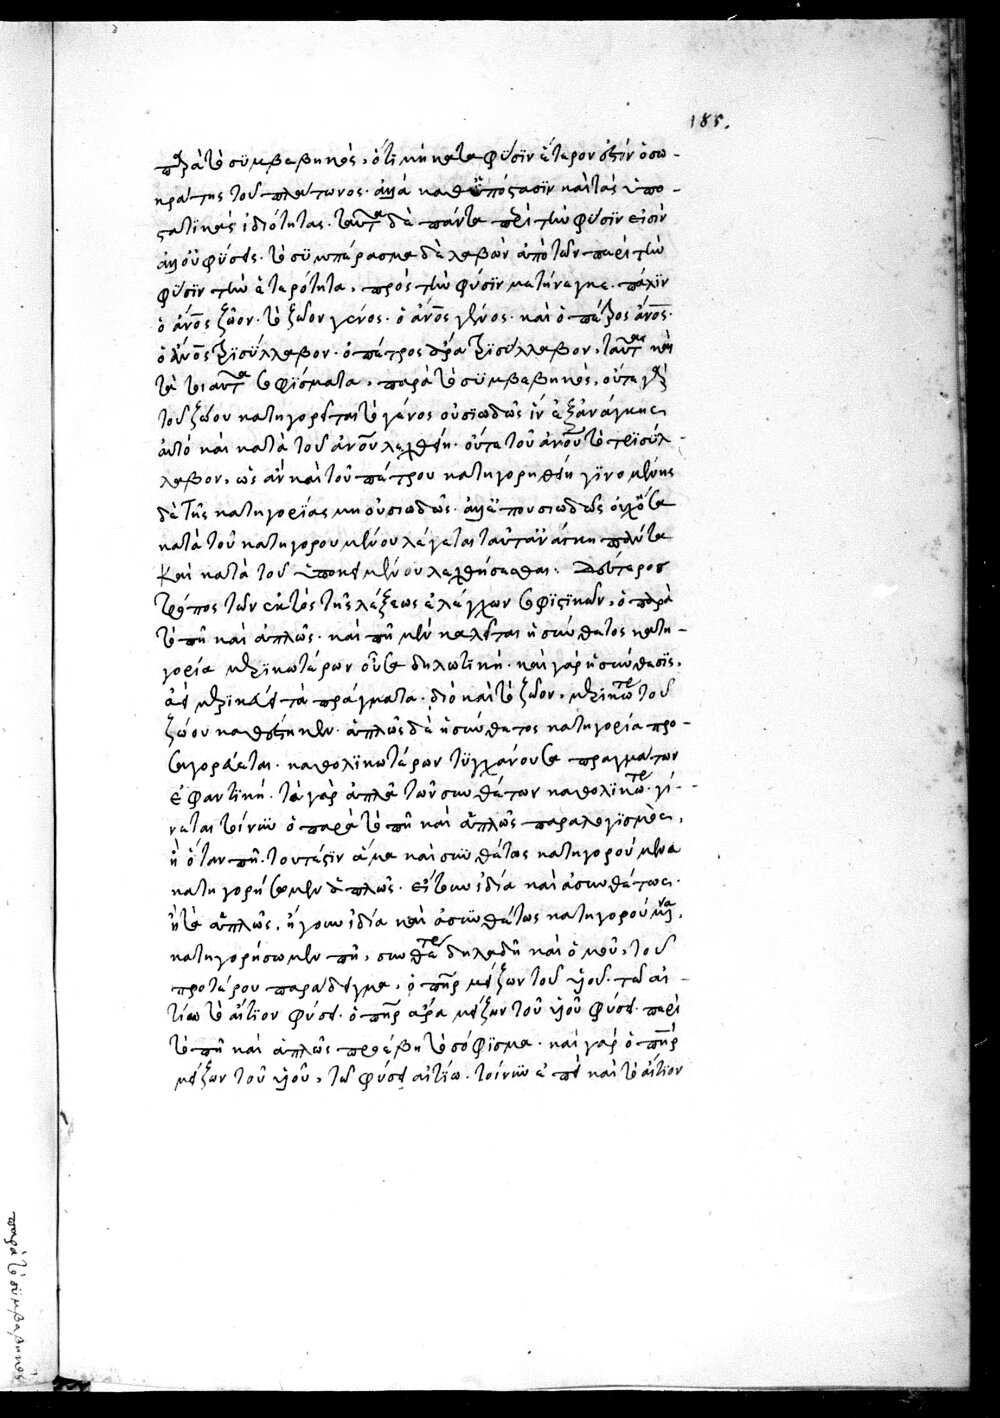 185.
παρὰ τὸ συμβεβηκὸς, ὅτι μὴ κατα φύσϊν ἕτερον ἐστὶν ὁ σω-
κράτης τοῦ πλάτωνος· ἀλλὰ καθ ὑπόστασϊν καὶ τὰς ὑπο-
στατικὰς ἰδιότητας. ταῦτα δὲ πάντα περὶ τὴν φύσϊν εἰσὶν
ἀλλ οὐ φύσεις. τὸ συμπέρασμα δὲ λαβὼν ἀπὸ τῶν περὶ τὴν
φύσϊν τὴν ἑτερότητα, πρὸς τὴν φύσϊν κατήνεγκε. πάλϊν
ὁ ἄνος ζῶον· τὸ ζῶον γένος· ὁ ἄνος γένος· καὶ ὁ πέτρος ἄνος·
ὁ ἄνος τρϊσύλλαβον· ὁ πέτρος ἄρα τρϊσύλλαβον, ταῦτα καὶ
τὰ τοιαῦτα σοφίσματα, παρὰ τὸ συμβεβηκὸς, οὔτε γὰρ
τοῦ ζώου κατηγορεῖται τὸ γένος οὐσϊωδῶς ἵν ἐξ ἀνάγκης
αὐτὸ καὶ κατὰ τοῦ ἀνου λεχθείη· οὔτε τοῦ ἀνου τὸ τρϊσύλ-
λαβον, ὡς ἂν καὶ τοῦ πέτρου κατηγορηθείη γϊνομένης
δὲ τῆς κατηγορίας μὴ οὐσιωδῶς·
κατὰ τοῦ κατηγορουμένου λέγεται ταῦτα ἀνάγκη πάντα
καὶ κατὰ τοῦ ὑποκειμένου λεχθήσεσθαι: Δεύτερος
τρόπος τῶν ἐκτὸς τῆς λέξεως ἐλέγχων σοφϊστϊκῶν, ὁ παρὰ
τὸ πῆ καὶ ἁπλῶς· καὶ πῆ μὲν καλεῖται ἡ σύνθετος κατη-
γορία μερϊκωτέρων οὖσα δηλωτϊκή· καὶ γὰρ ἡ σύνθεσϊς,
ἀεὶ μερϊκεύει τὰ πράγματα· διὸ καὶ τὸ ζῶον, μερϊκώτε τοῦ
ζώου καθέστηκεν· ἁπλῶς δὲ ἡ ἀσύνθετος κατηγορία προ-
σαγορεύεται· καθολϊκωτέρων τυγχάνουσα πραγμάτων
ἐμφαντϊκή· τὰ γὰρ ἁπλᾶ τῶν συνθέτων καθολϊκώτε· γί-
νεται τοίνυν ὁ παρὰ τὸ πῆ καὶ ἁπλῶς παραλογϊσμὸς,
ἢ ὅταν πῆ· τουτέστϊν ἅμα καὶ συνθέτως κατηγορούμενα
κατηγορήσωμεν ἁπλῶς· εἴτουν ἰδία καὶ ἀσυνθέτως·
ἢ τὰ ἁπλῶς, ἤγουν ἰδία καὶ ἀσυνθέτως κατηγορούμενα,
κατηγορήσωμεν πῆ, συνθέτως δηλαδὴ καὶ ὁμοῦ, τοῦ
προτέρου παράδειγμα, ὁ πηρ μείζων τοῦ υἱοῦ· τῶ αἰ-
τίω τὸ αἴτϊον φύσει· ὁ πηρ ἄρα μείζων τοῦ υἱοῦ φύσει· παρὰ
τὸ πῆ καὶ ἁπλῶς προέβη τὸ σόφϊσμα· καὶ γὰρ ὁ πηρ
μείζων τοῦ υἱοῦ, τῶ φύσει αἰτίω· τοίνυν ἐπεὶ καὶ τὸ αἴτϊον
παρὰ τὸ συμβεβηκὸς